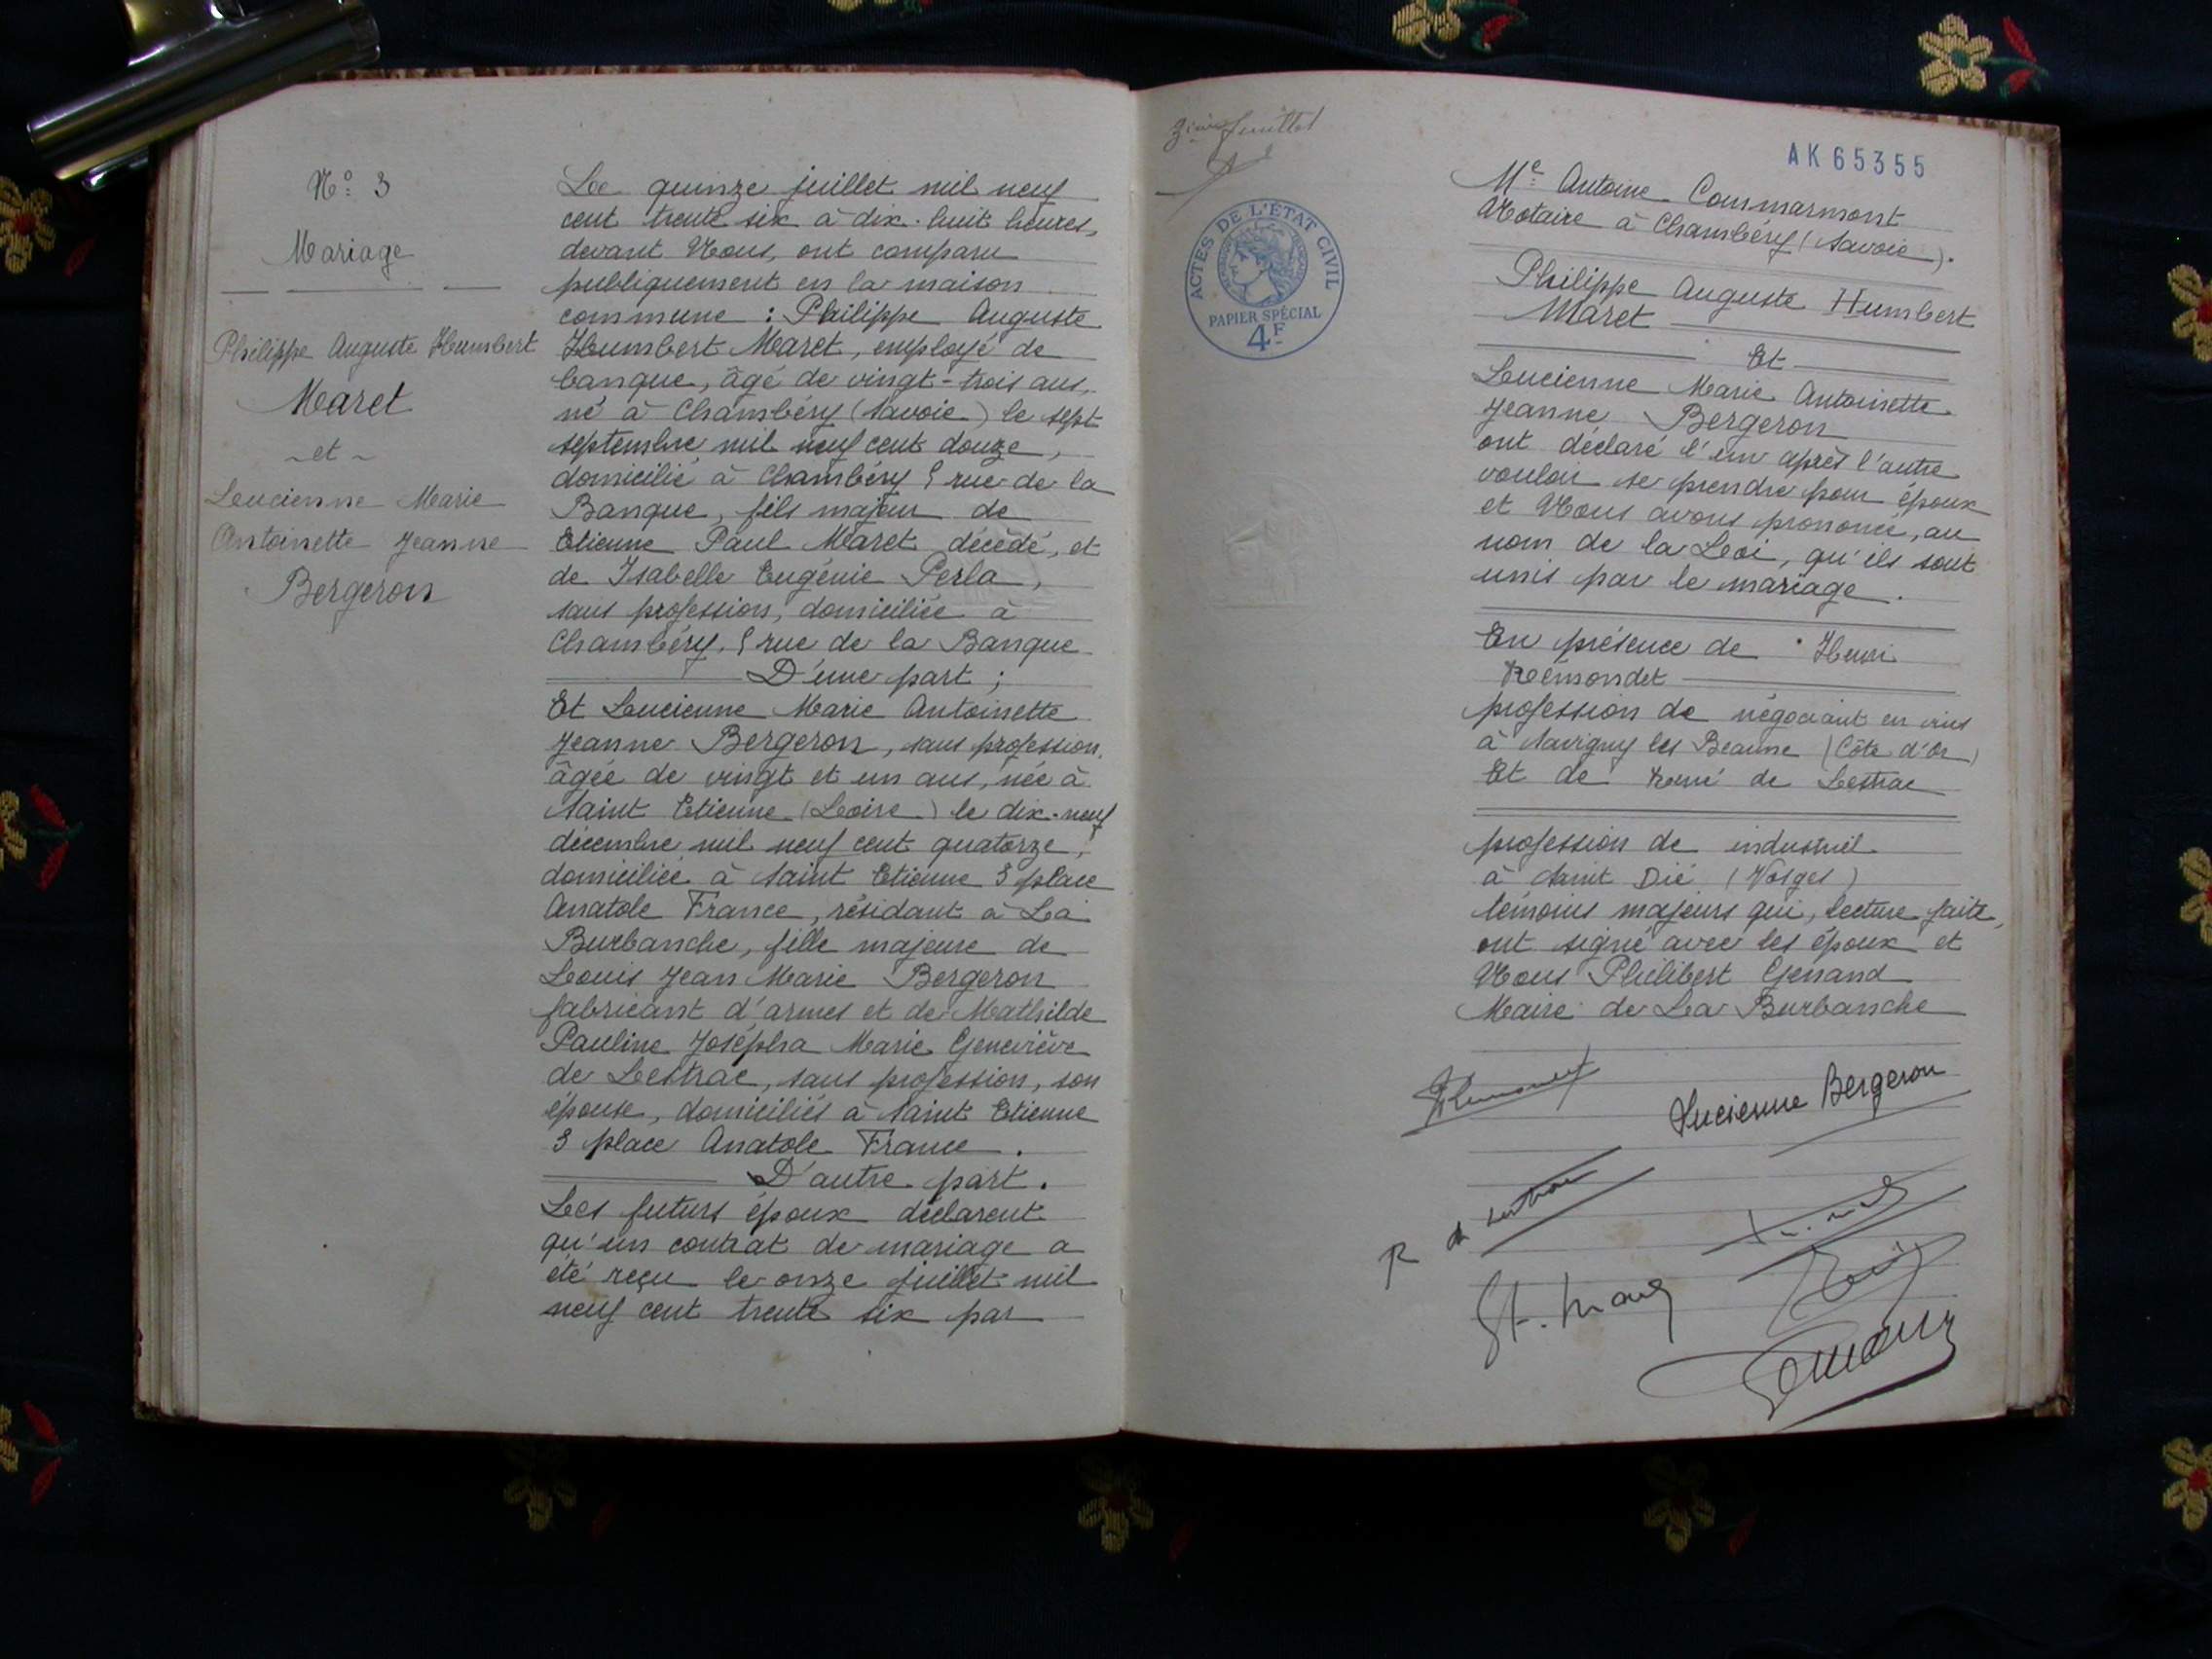 N° 3
Mariage
Philippe Auguste Humbert
Maret
~ et ~
Lucienne Marie
Antoinette Jeanne
Bergeron
Le quinze juillet mil neuf
cent trente six à dix-huit heures,
devant Nous, ont comparu
publiquement en la maison
commune : Philippe Auguste
Humbert Maret, employé de
banque, âgé de vingt-trois ans,
né à Chambéry (Savoie) le sept
septembre mil neuf cent douze,
domicilié à Chambéry rue de la
Banque, fils majeur de
Etienne Paul Maret décédé, et
de Isabelle Eugénie Perla,
sans profession, domiciliée à
Chambéry, rue de la Banque
D'une part ;
Et Lucienne Marie Antoinette
Jeanne Bergeron, sans profession,
âgée de vingt et un ans, née à
Saint Etienne (Loire) le dix-neuf
décembre mil neuf cent quatorze,
domiciliée à Saint Etienne 3 place
Anatole France, résidant à La
Burbanche, fille majeure de
Louis Jean Marie Bergeron
fabricant d'armes et de Mathilde
Pauline Josépha Marie Geneviève
de Lestrac, sans profession, son
épouse, domiciliés à Saint Etienne
3 place Anatole France.
D'autre part.
Les futurs époux déclarent
qu'un contrat de mariage a
été reçu le onze juillet mil
neuf cent trente six par
3ième feuillet
ACTES DE L'ÉTAT CIVIL
PAPIER SPÉCIAL
4F
AK65355
Me Antoine Commarmont
Notaire à Chambéry (Savoie).
Philippe Auguste Humbert
Maret
Et
Lucienne Marie Antoinette
Jeanne Bergeron
ont déclaré l'un après l'autre
vouloir se prendre pour époux
et Nous avons prononcé, au
nom de la Loi, qu'ils sont
unis par le mariage.
En présence de Henri
Rémondet
profession de négociant en vins
à Savigny les Beaune (Côte d'Or)
Et de René de Lestrac
profession de industriel
à Saint Dié (Vosges)
témoins majeurs qui, lecture faite,
ont signé avec les époux et
Nous Philibert Genand
Maire de La Burbanche
Lucienne Bergeron
R de Lestrac